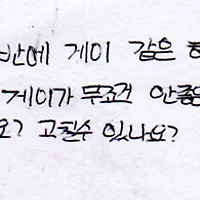 반에 게이 같은
게이가 무조건 안좋은
요? 고칠수 있나요?